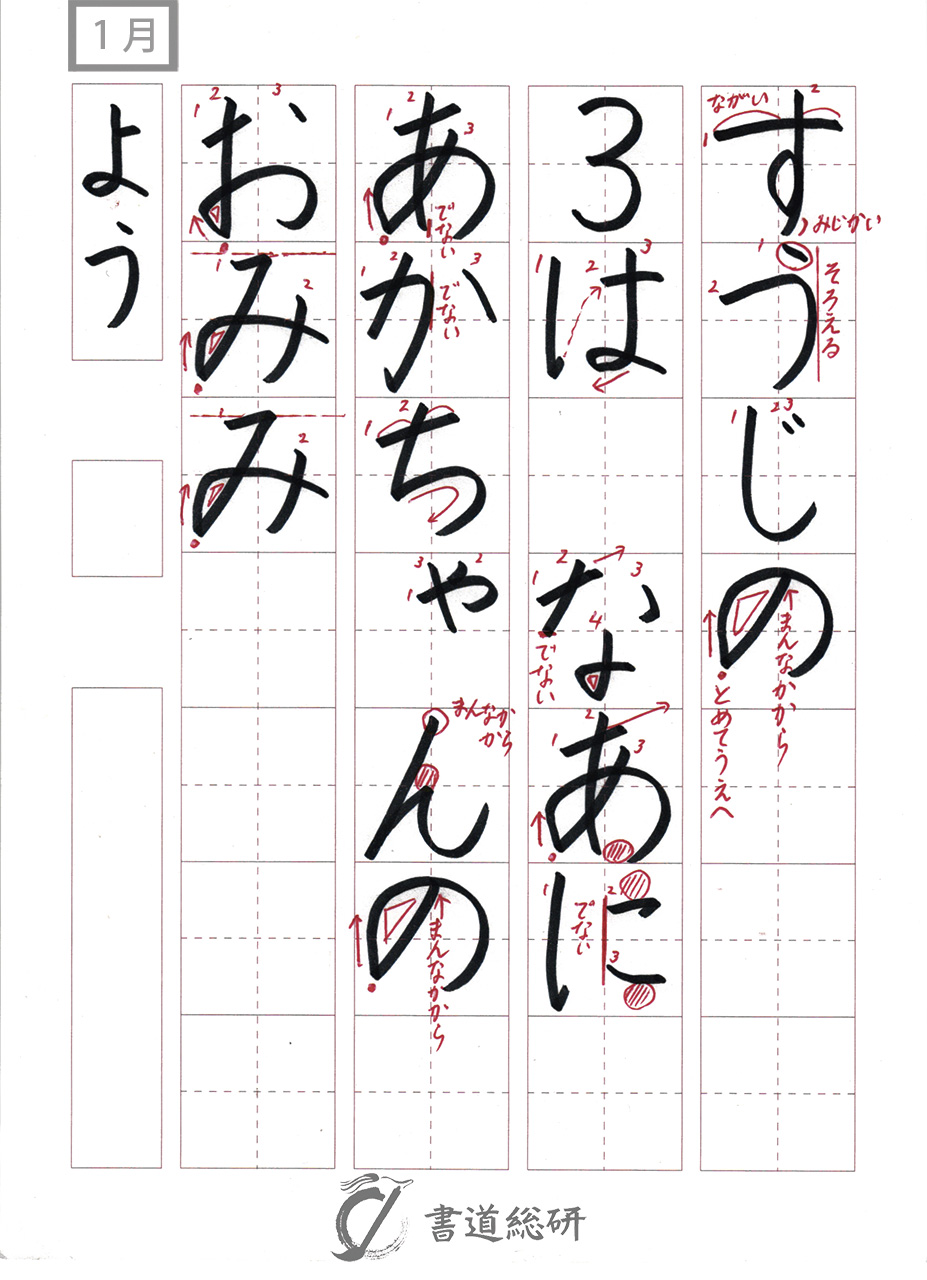 1月
すうじの
ながい
みじかい
そろえる
まんなかから
とめてうえへ
3は なあに
でない
でない
あかちゃんの
でない
でない
まんなかから
まんなかから
おみみ
よう
書道総研